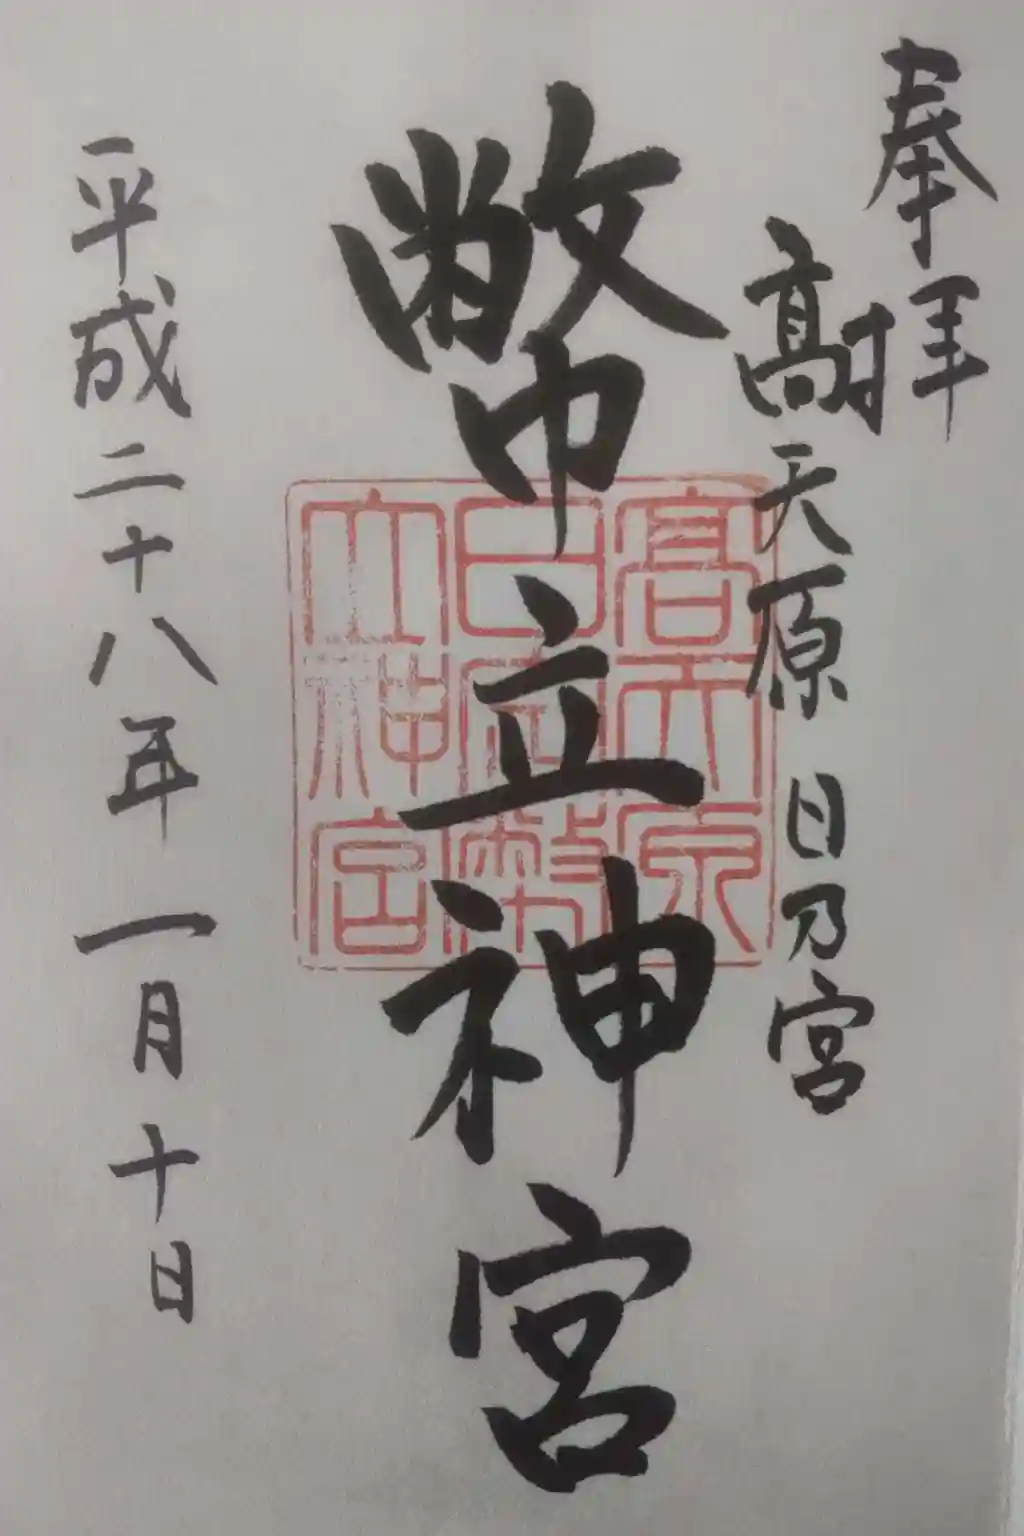 奉拝
高天原 日乃宮
幣立神宮
高天原
日宮幣
立神宮
平成二十八年一月十日